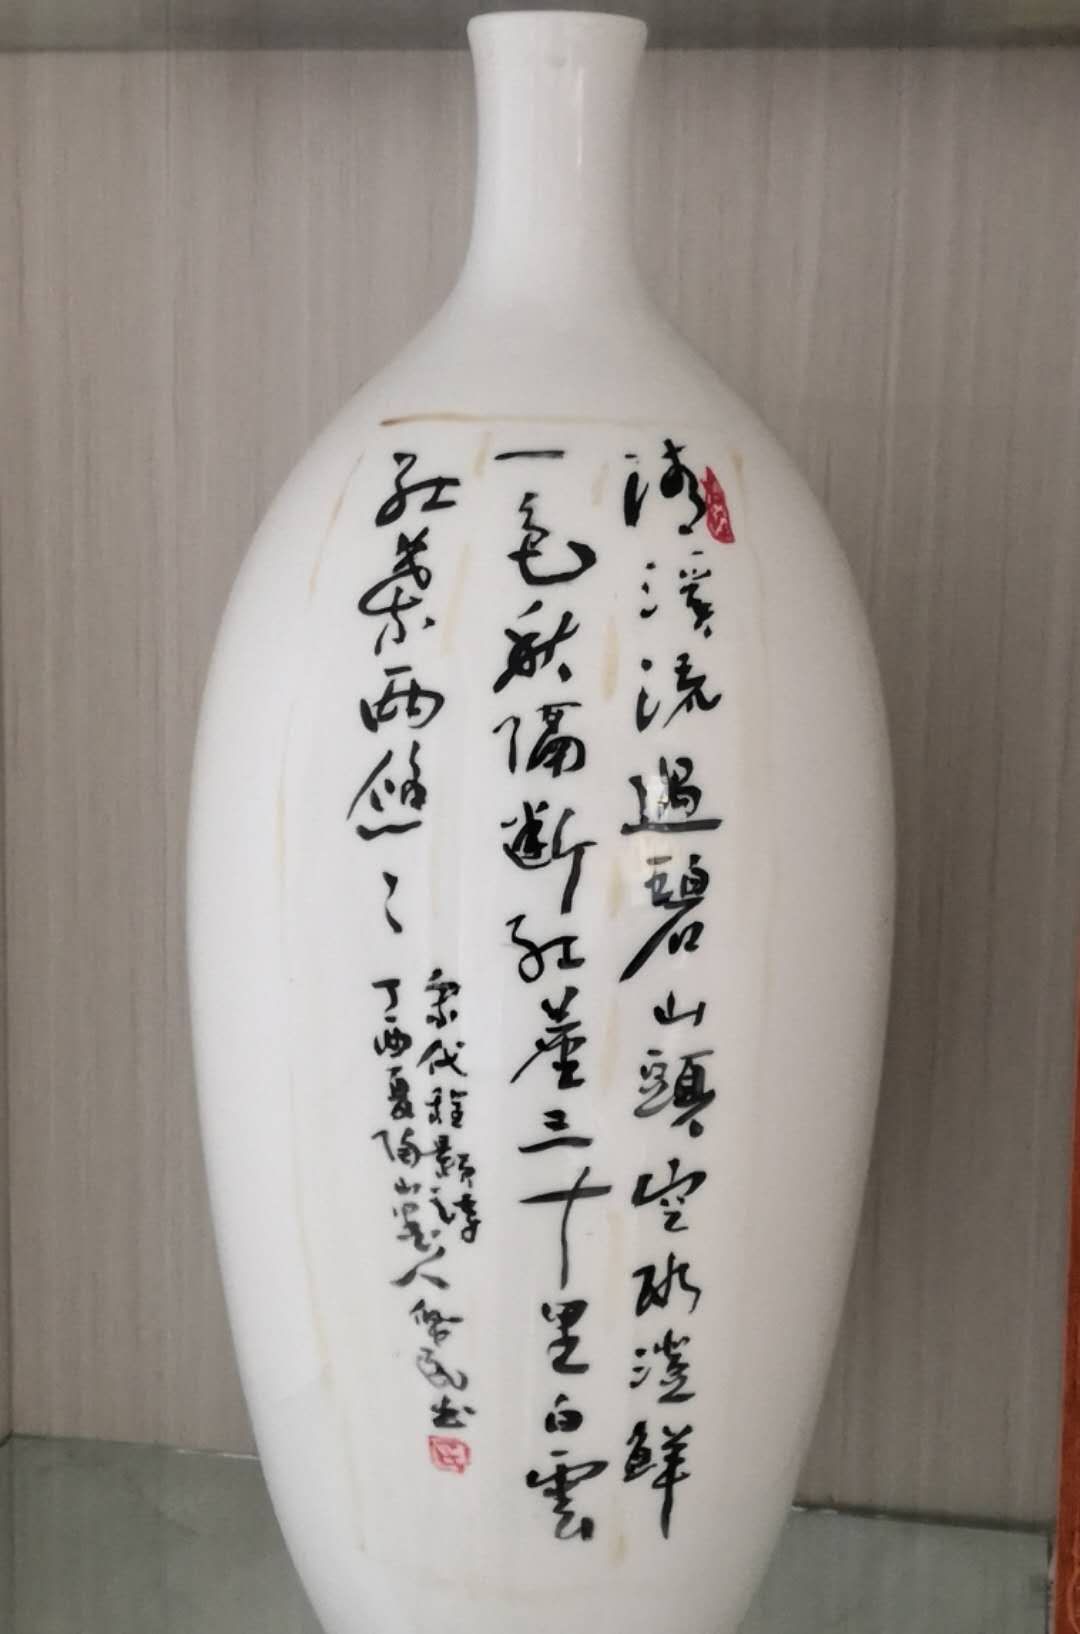 清溪流過碧山頭空水澄鮮
一色秋隔断紅塵三十里白雲
紅葉兩悠々
宋代程顥之诗
丁酉夏陶山人民书